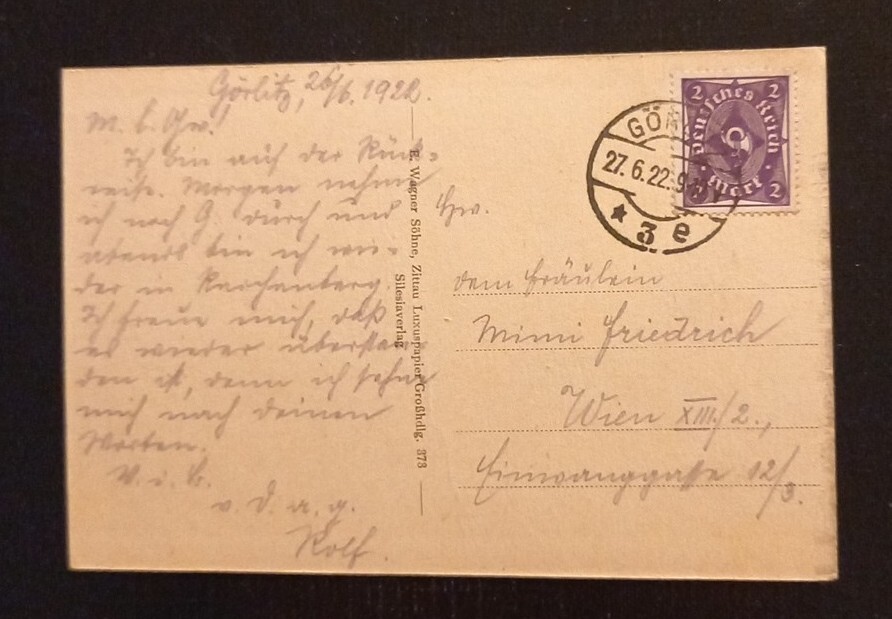 Görlitz, 26/6. 1922.
Ich bin auf der Rück-
reise. Morgen nehme
ich noch G durch und
abends bin ich wie-
der in
Ich freue mich, daß
es wieder überstan-
den ist, denn ich sehne
mich nach deinen
Worten.
v. D. a. g.
Rolf.
E. Wagner Söhne, Zittau Luxuspapier-Großhdlg. 373
Silesiaverlag
2 2
Deutsches Reich
Mark 2
GÖR
27.6.22.9
* 3 e
dem Fräulein
Mimi Friedrich
Wien XIII./2.,
Einwanggasse 12/3.